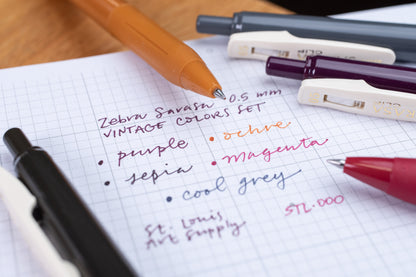 Zebra Sarasa 0.5 mm
VINTAGE COLORS SET
• purple • ochre
• sepia • magenta
• cool grey
St. Louis
Art Supply
STL.000